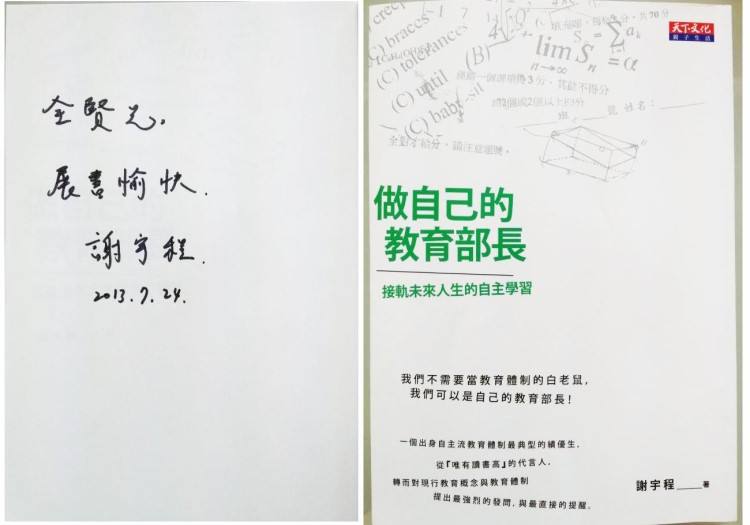 全賢兄,
展書愉快.
謝宇程.
2013.7.24.
(C) braces
(C) tolerances
(B)
(C) until
(C) baby-sit
lim Sn = α
n→∞
S = Σ ak
全對才給分,請注意選獎。
天下文化
親子生活
做自己的
教育部長
接軌未來人生的自主學習
我們不需要當教育體制的白老鼠,
我們可以是自己的教育部長!
一個出身自主流教育體制最典型的績優生,
從『唯有讀書高』的代言人,
轉而對現行教育概念與教育體制
提出最強烈的發問,與最直接的提醒。
謝宇程 著